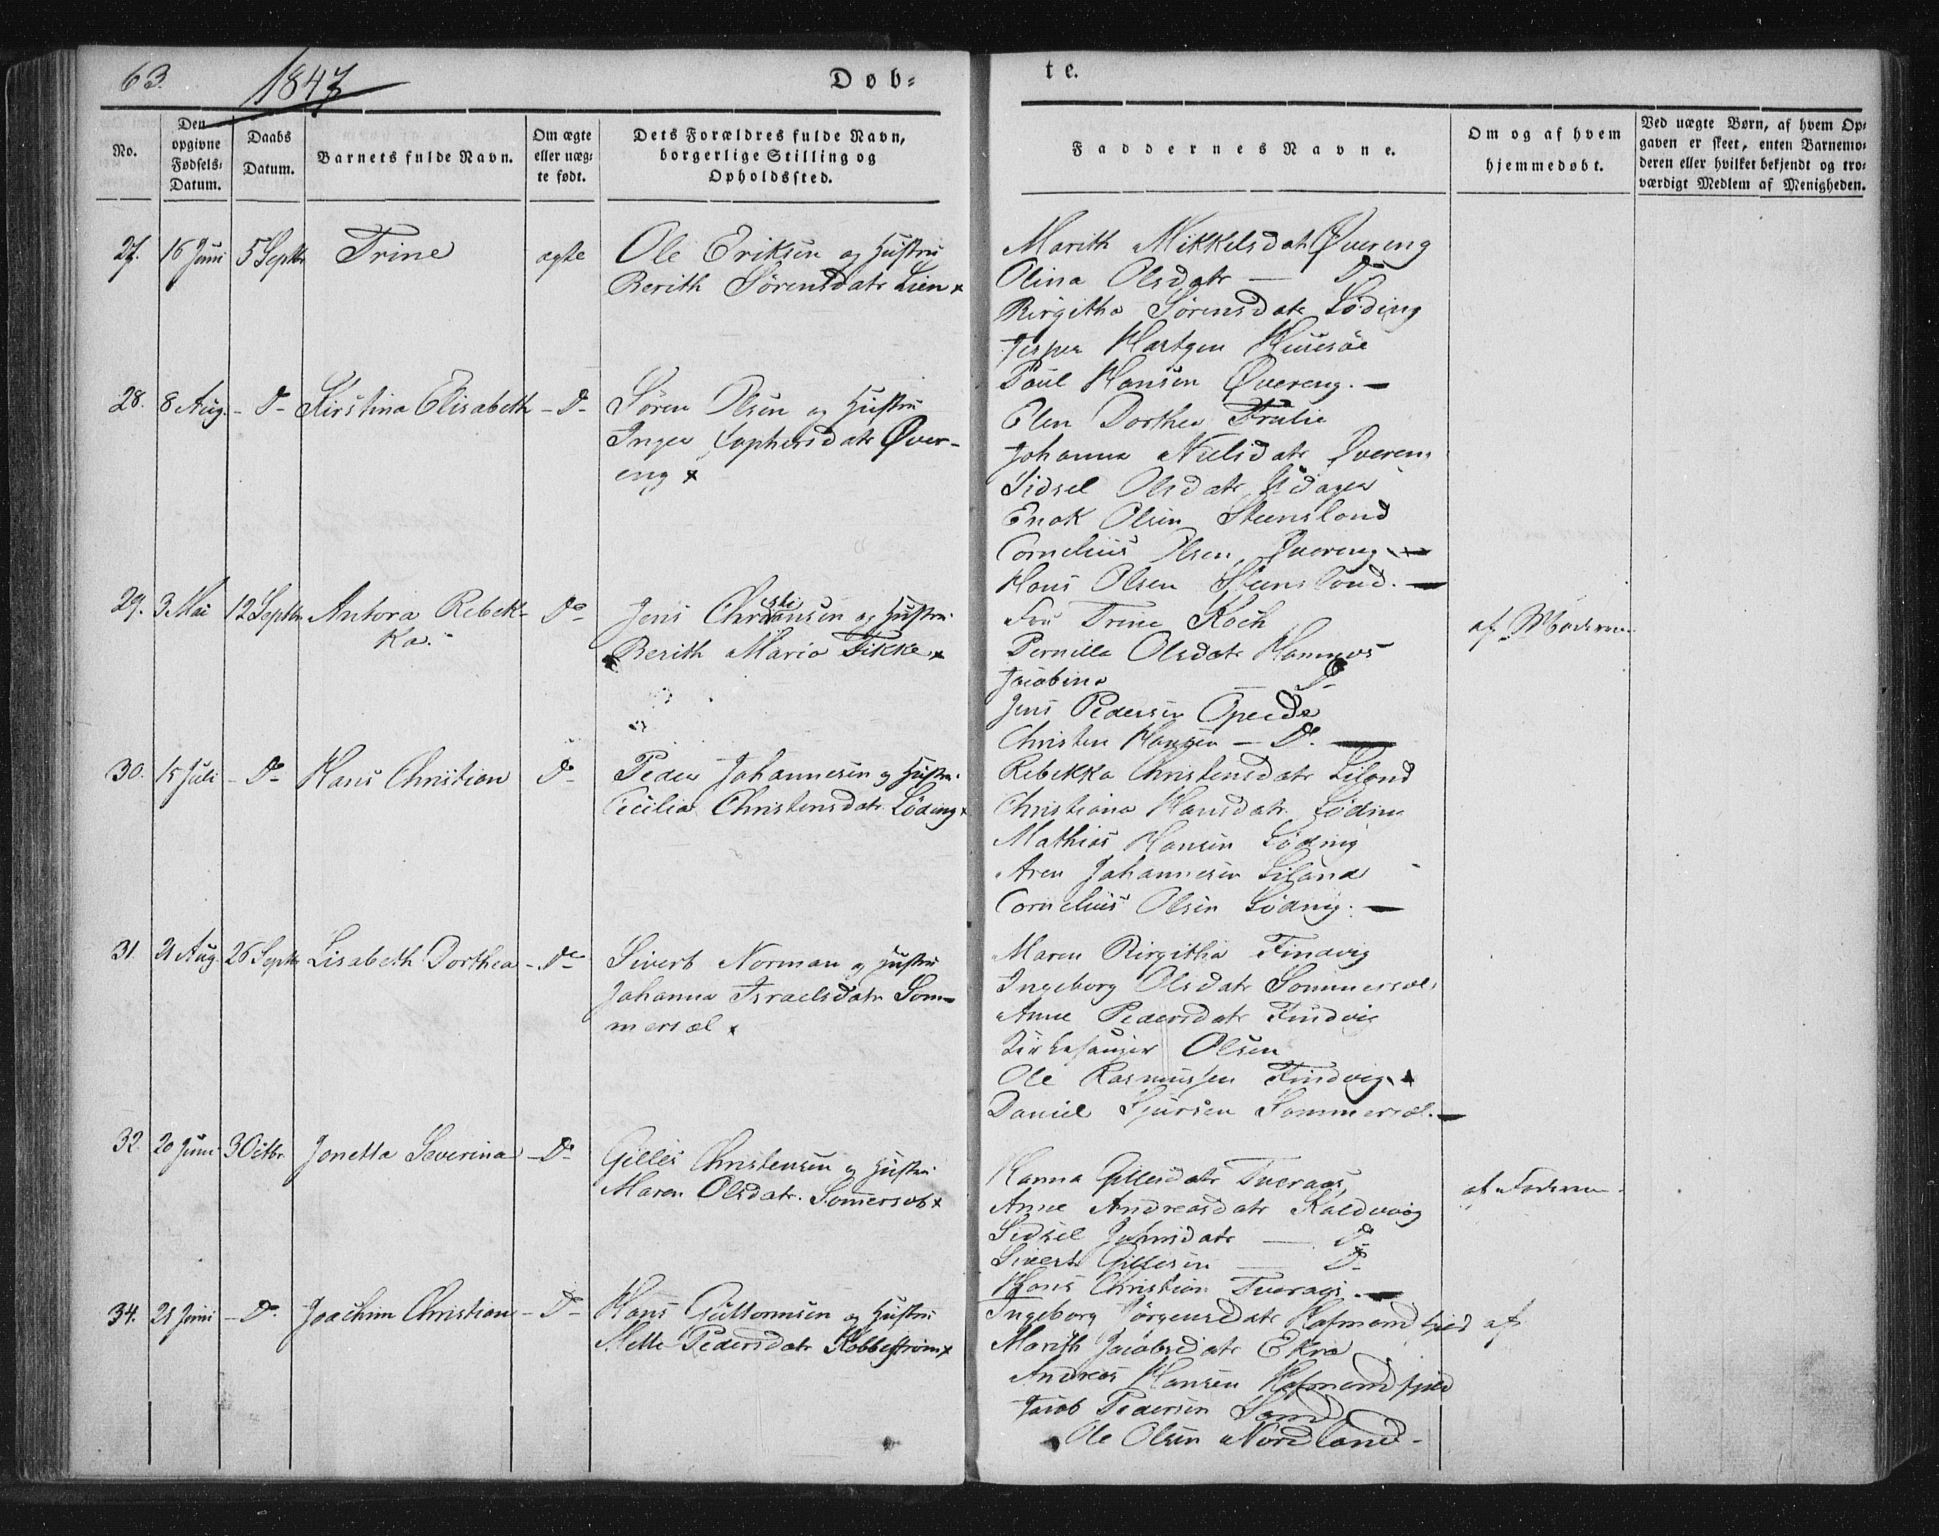 63.
1847
Døb-
te.
No.
Den opgivne Fødsels-Datum.
Daabs Datum.
Barnets fulde Navn.
Om ægte eller uæg-te født.
Dets Forældres fulde Navn, borgerlige Stilling og Opholdssted.
Faddernes Navne.
Om og af hvem hjemmedøbt.
Ved uægte Børn, af hvem Op-gaven er skeet, enten Barnemo-deren eller hvilket bekjendt og tro-værdigt Medlem af Menigheden.
27. 16 Juni 5 Septbr Trine ægte Ole Eriksen og Hustru
Berith Sørensdatr Lien x
Marith Mikkelsdatr Øvereng
Olina Olsdatr — Do
Birgitha Sørensdatr Løding
Jesper Hartgen
Paul Hansen Øvereng. —
28. 8 Aug. - Do - Kirstina Elisabeth - Do - Søren Olsen og Hustru
Inger Zophersdatr Øver-
eng x
Elen Dorthea
Johanna Nielsdatr Øvereng
Sidsel Olsdatr
Enok Olsen Steensland
Cornelius Olsen Øvereng —
Hans Olsen Steensland. —
29. 3. Mai 12 Septbr Antora Rebek-
ka. Do Jens Christiansen og Hustru
Berith Maria Fikke x
Fru Trine Koch
Pernilla Olsdatr Hamnes
Jacobina — Do
Jens Pedersen Opeide
Christen Hansen — Do. —
af Moderen
30. 15 Juli - Do - Hans Christian Do Peder Johannesen og Hustru
Cecilia Christensdatr Løding x
Rebekka Christensdatr Liland
Christiana Hansdatr Løding
Mathias Hansen Løding
Aren Johannesen Liland
Cornelius Olsen Løding. —
31. 21 Aug 26 Septbr Lisabeth Dorthea - Do - Sivert Norman og Hustru
Johanna Israelsdatr Som-
mersæl x
Maren Birgitha Findvig
Ingeborg Olsdatr Sommersæl
Anne Pedersdatr Findvig
Kirkesanger Olsen
Ole Rasmussen Findvig
Daniel Sjursen Sommersæl. —
32. 20 Juni 3 Octbr. Jonetta Severina - Do - Gilles Christensen og Hustru
Maren Olsdatr. Somersæl x
Hanna Gillesdatr Tveraas
Anne Andreasdatr Kaldvaag
Sidsel Johnsdatr — Do
Sivert Gillesen — Do
Hans Christian —
af Faderen
34. 21 Juni - Do. Joachim Christian - Do - Hans Guttormsen og Hustru
Mette Pedersdatr Kobbestrøm x
Ingeborg Jørgensdatr Hafmandfjeld af
Marith Jacobsdatr Ekra
Andreas Hansen Hafmandfjeld
Jacob Pedersen Sand
Ole Olsen Nordland -